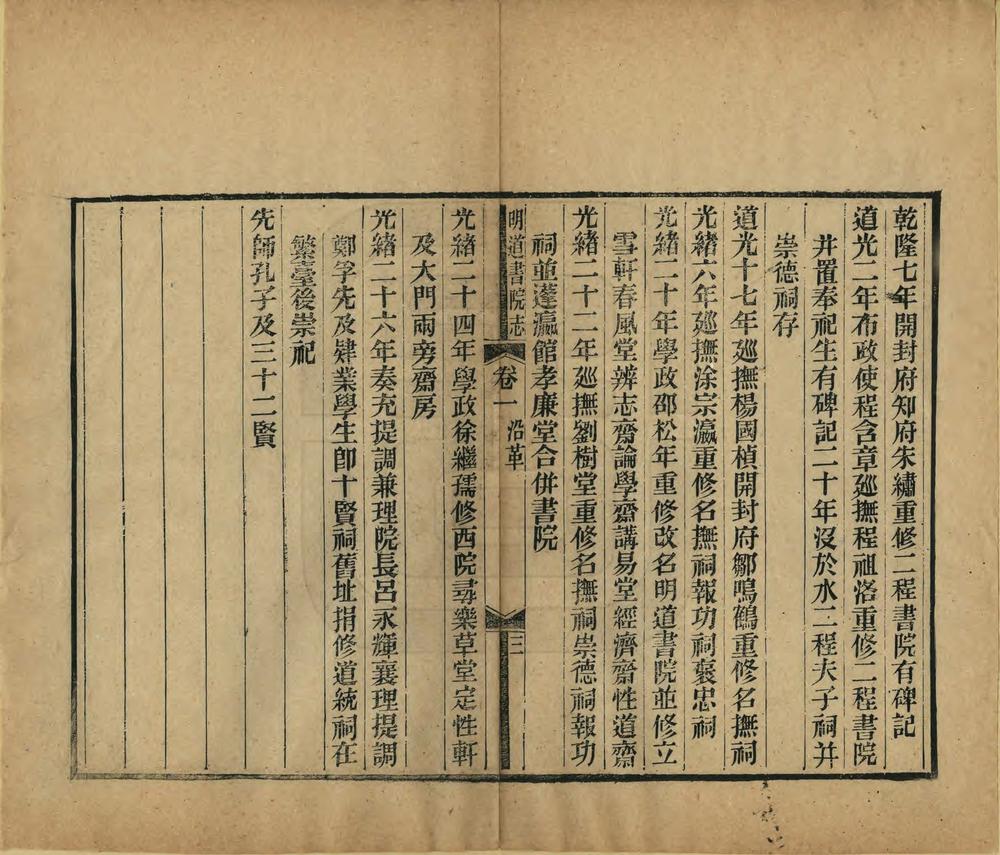 乾隆七年開封府知府朱繡重修二程書院有碑記
道光二年布政使程含章廵撫程祖洛重修二程書院
并置奉祀生有碑記二十年沒於水二程夫子祠并
崇德祠存
道光十七年廵撫楊國楨開封府鄒鳴鶴重修名撫祠
光緒六年廵撫涂宗瀛重修名撫祠報功祠褒忠祠
光緒二十年學政邵松年重修改名明道書院並修立
雪軒春風堂辨志齋論學齋講易堂經濟齋性道齋
光緒二十二年廵撫劉樹堂重修名撫祠崇德祠報功
祠並蓬瀛館孝廉堂合併書院
明道書院志 卷一 沿革 三
光緒二十四年學政徐繼孺修西院尋樂草堂定性軒
及大門兩旁齋房
光緒二十六年奏充提調兼理院長呂永輝襄理提調
鄭孚先及肄業學生卽十賢祠舊址捐修道統祠在
繁臺後崇祀
先師孔子及三十二賢